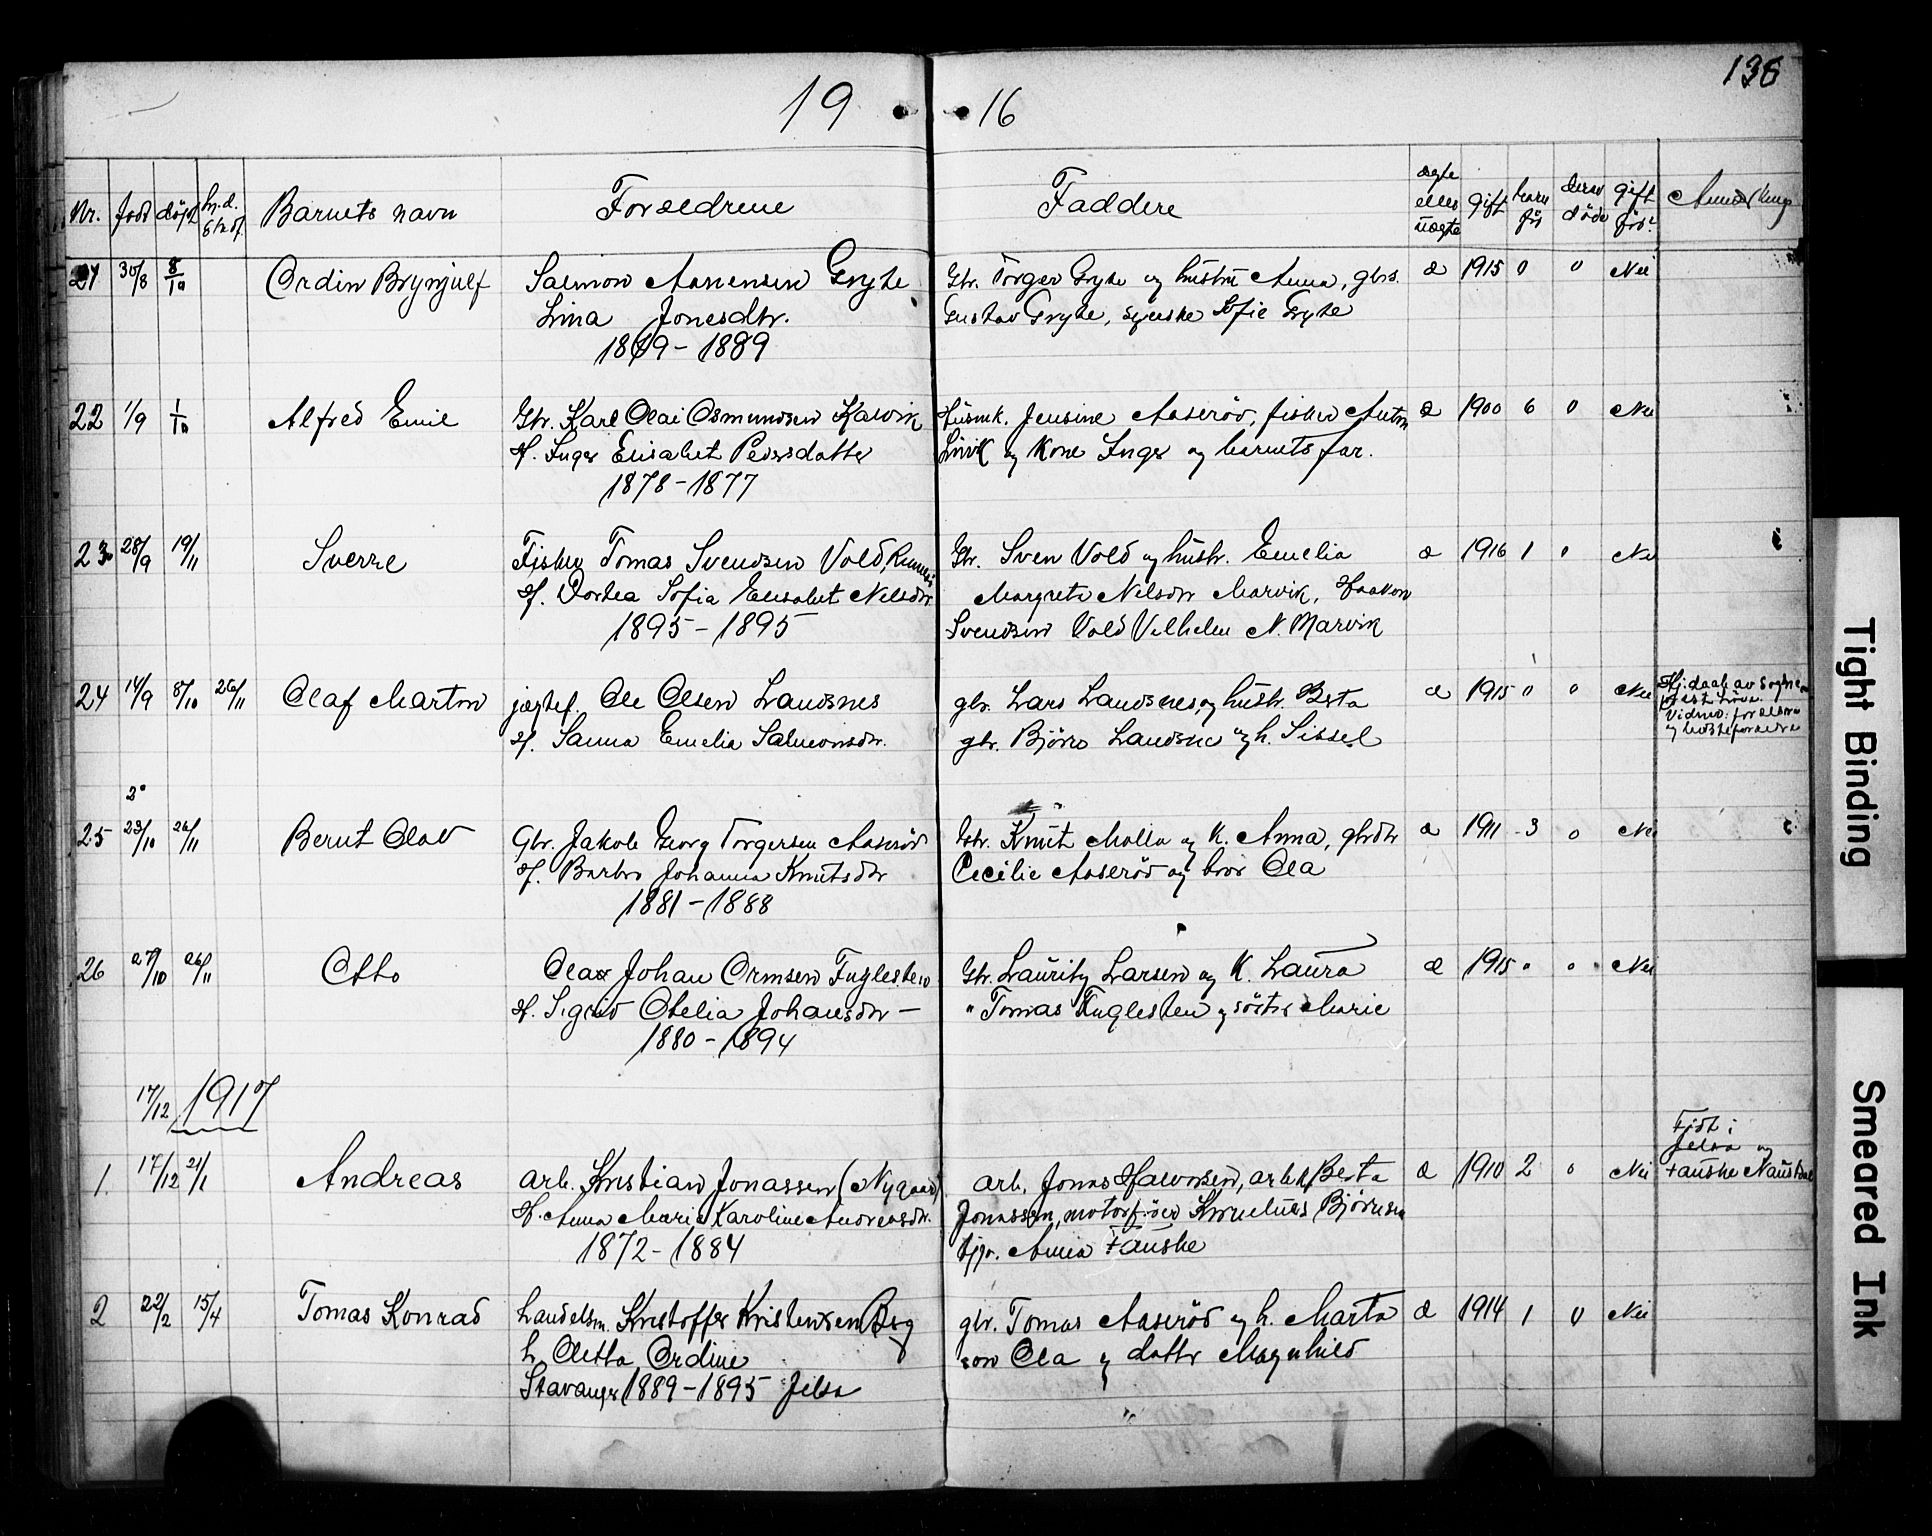 136
19 16
Nr. født döpt hj.d. stadf. Barnets navn Forældrene Faddere ægte eller uægte gift barn för derav döde gift för? Anmerkning
21 30/8 8/10 Ordin Brynjulf Salmon Aanensen Gryte Gbr. Torger Gryte og hustru Anna, gbrs. æ 1915 0 0 Nei
Lina Jonesdtr. Gustav Gryte, syerske Sofie Gryte
1889 - 1889
22 1/9 1/10 Alfred Emil Gbr. Karl Olai Osmundsen Kalvik Husmk. Jensine Aaseröd, fisker Anton æ 1900 6 0 Nei
H. Inger Elisabet Pedersdatter og kone Inger og barnets far.
1878 - 1877
23 28/9 19/11 Sverre Fisker Tomas Svendsen Vold, Gbr. Sven Vold og hustr. Emelia æ 1916 1 0 Nei
H. Dortea Sofia Elisabet Nelsdtr. Margreta Nelsdtr Marvik, Haakon
1895 - 1895 Svendsen Vold Vilhelm N. Marvik
24 14/9 8/10 26/11 Olaf Marton jægtef. Ole Olsen Landsnes gbr. Lars Landsnes og hustr. Berta æ 1915 0 0 Nei Hj.daab av sogne-
H. Sanna Emelia Salmonsdtr. gbr. Björn Landsnes og h. Sissel Vidner: forældre
og besteforældre
25 23/10 26/11 Bernt Olav Gbr. Jakob Georg Torgersen Aaseröd Gbr. Knut Molla og k. Anna, gbrdtr æ 1911 3 0 Nei
H. Barbro Johanna Knutsdtr Cecilie Aaseröd og bror Ola
1881 - 1888
26 27/10 26/11 Otto Olav Johan Ormsen Fuglesten Gbr. Lauritz Larsen og K. Laura æ 1915 0 0 Nei
H. Sigrid Otelia Johansdtr - " Tomas Fuglesten og söster Marie
1880 - 1894
17/12 1917
Født i
Jelsa og
1. 17/12 21/1 Andreas Arb. Kristian Jonassen (Nygaard) Arb. Jonas Halvorsen, arbek. Berta æ 1910 2 0 Nei Fauske
H. Anna Marie Karoline Andreasdtr. Jonassen, motorförer Kornelius Björnsen
1872 - 1884 tjp. Anna Fauske
2 22/2 15/4 Tomas Konrad Landelsm. Kristoffer Kristensen Berg gbr. Tomas Aaseröd og h. Marta æ 1914 1 0 Nei
h. Oletta Ordine sön Ola og datter Magnhild
Stavanger 1889 - 1895 Jelsa
Tight Binding
Smeared Ink